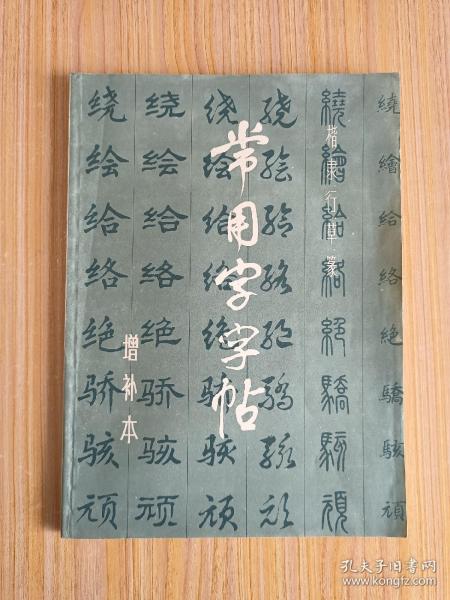 常用字字帖
楷隶行草篆
增补本
绕 绕 绕 绕 繞 繞
绘 绘 绘 绘 繪 繪
给 给 给 给 給 給
络 络 络 络 絡 絡
绝 绝 绝 绝 絕 絕
骄 骄 骄 驕 驕 驕
骇 骇 骇 骇 駭 駭
顽 顽 顽 顽 頑 頑
孔夫子旧书网
www.kongfz.com